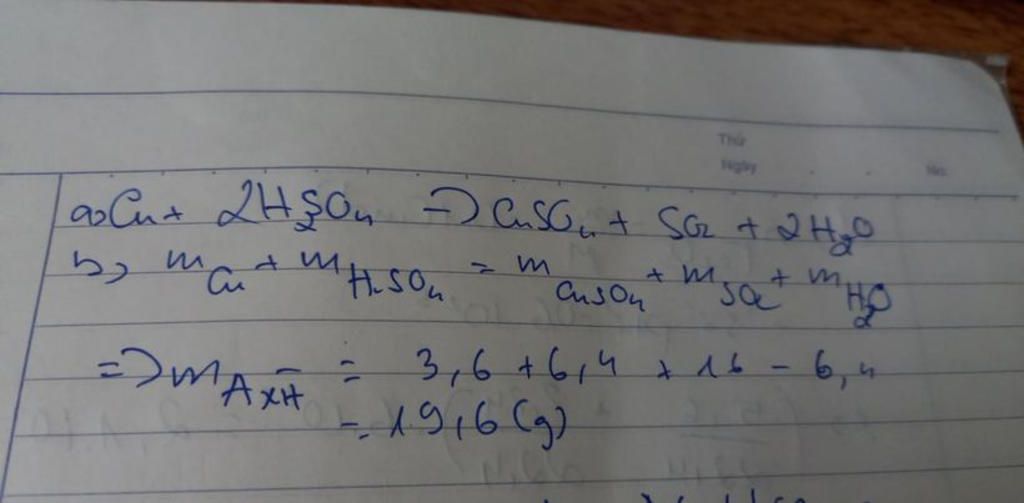 Thứ
Ngày
No.
a> Cu + 2H2SO4 → CuSO4 + SO2 + 2H2O
b> mCu + mH2SO4 = mCuSO4 + mSO2 + mH2O
=> mAxit = 3,6 + 6,4 + 16 - 6,4
= 19,6 (g)